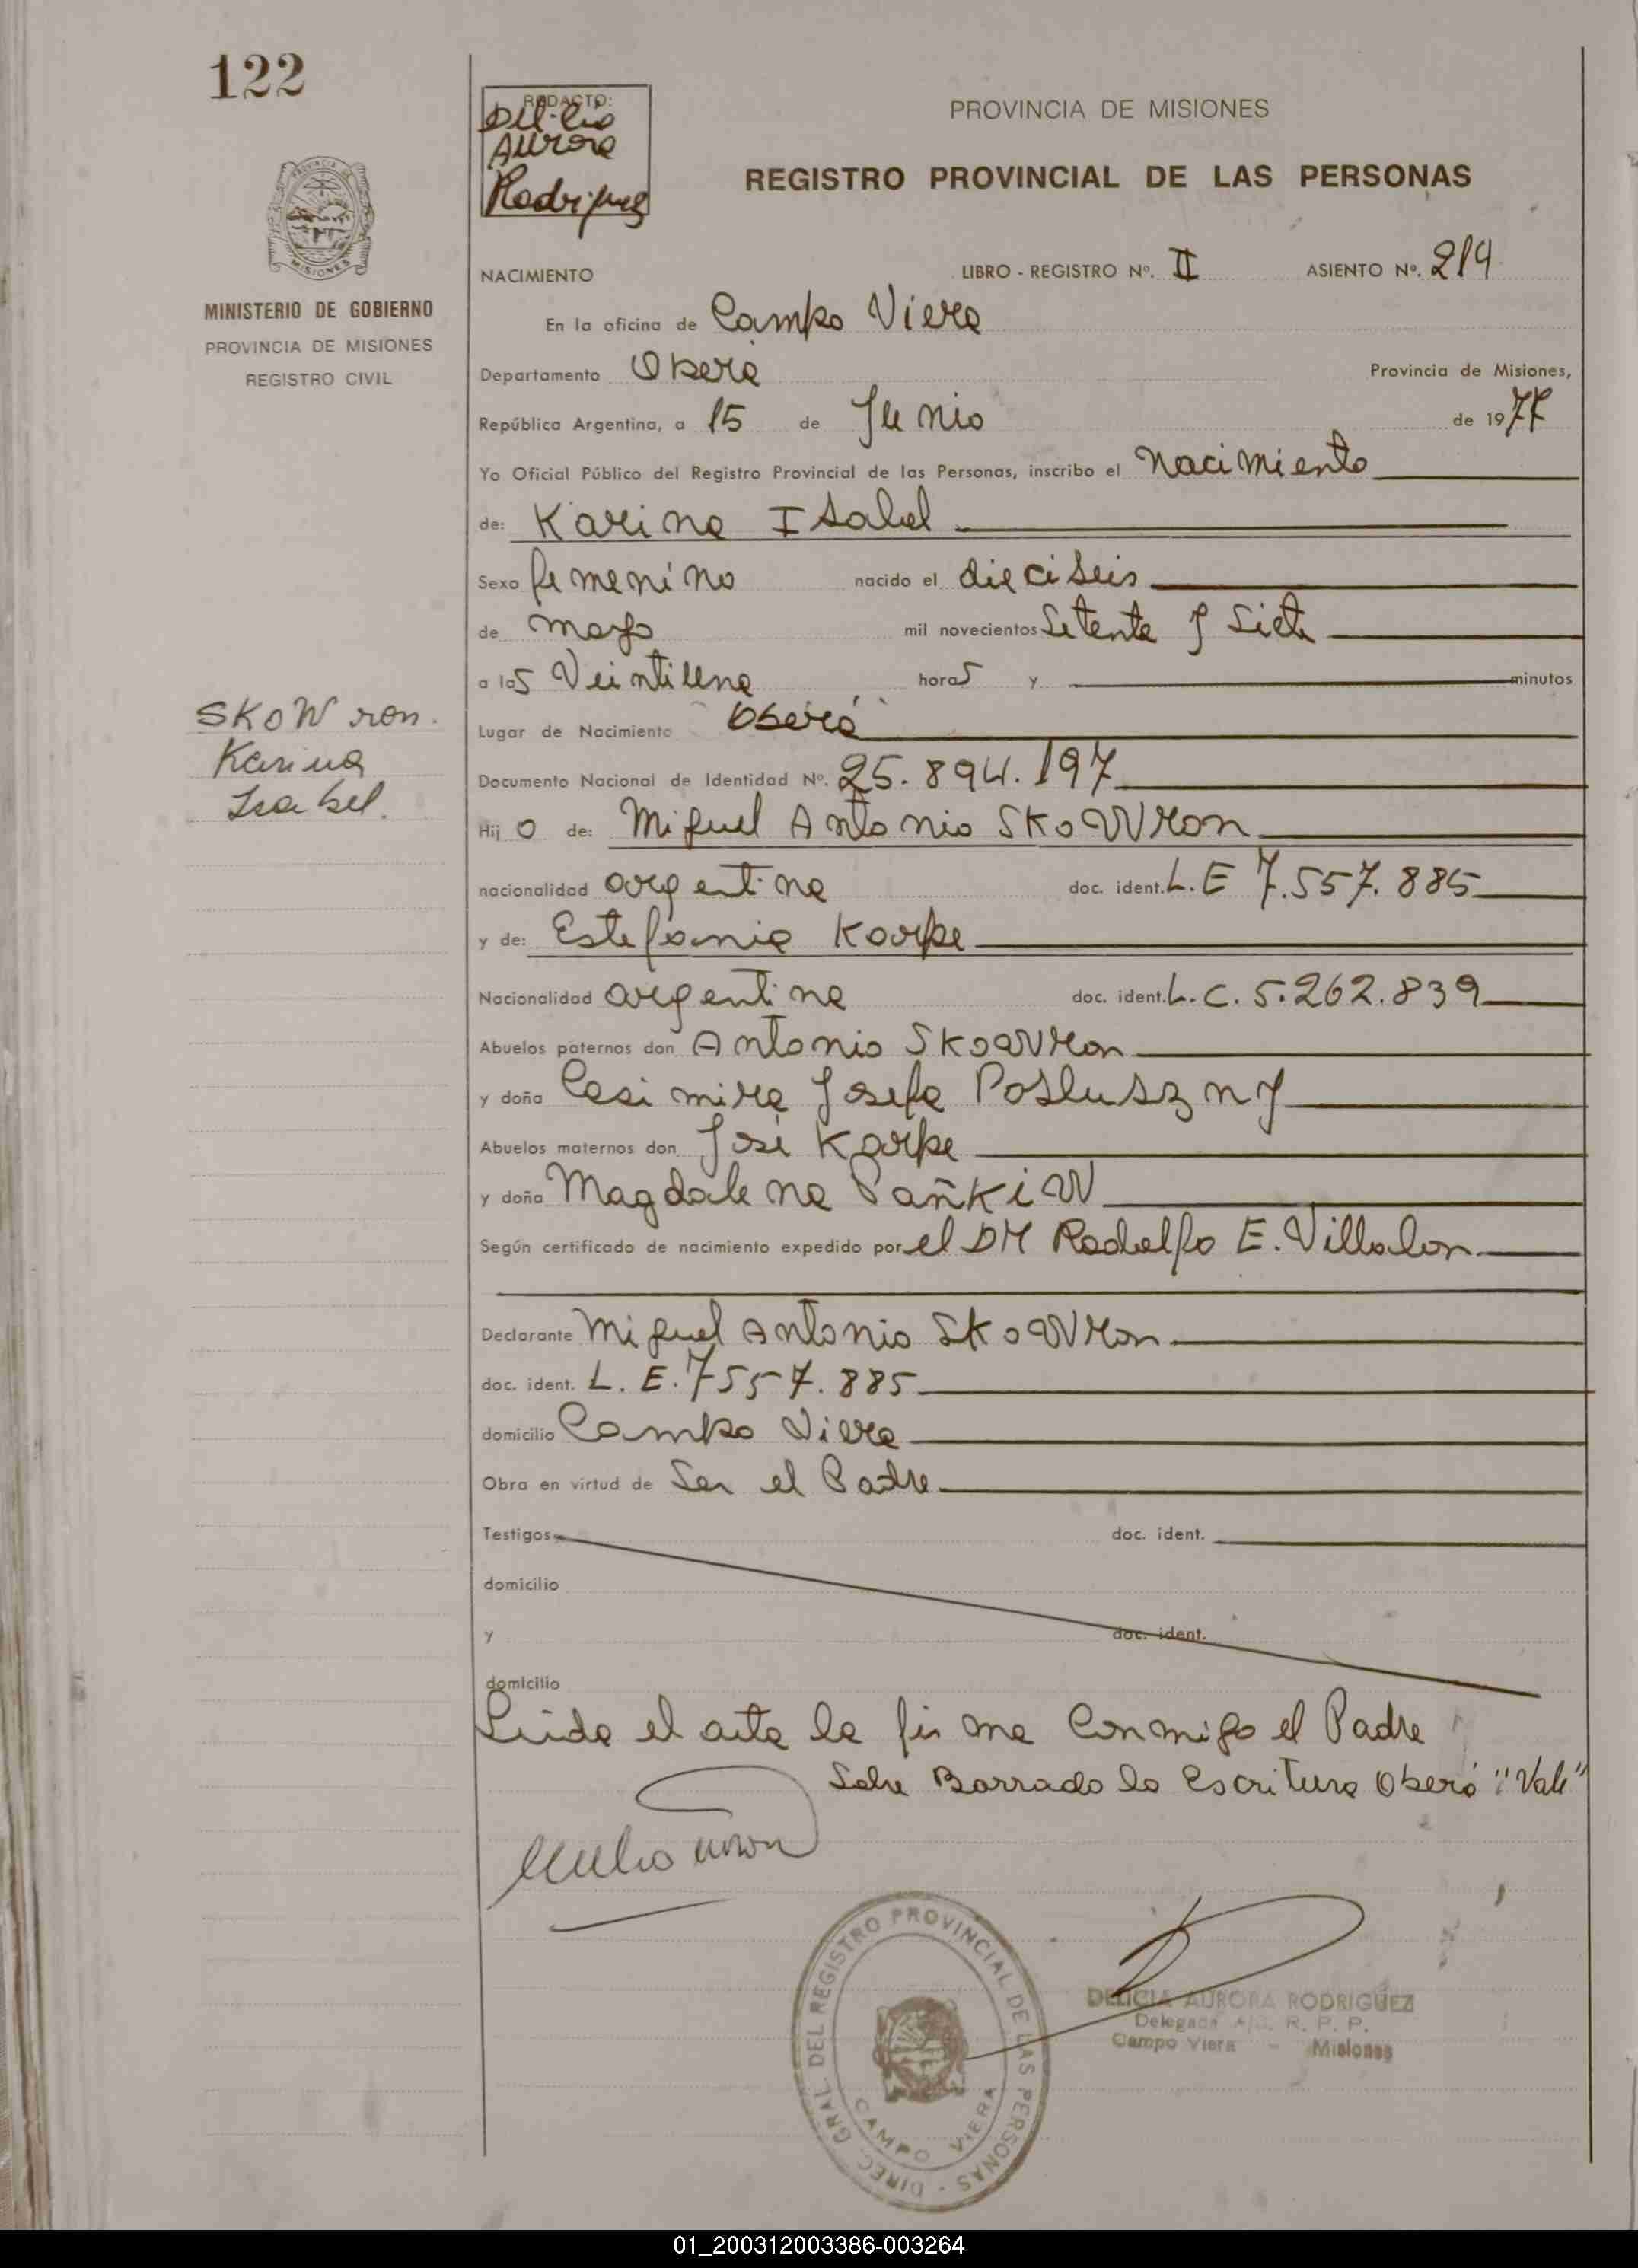 122
REDACTO:
Aurora
Rodriguez
PROVINCIA DE MISIONES
REGISTRO PROVINCIAL DE LAS PERSONAS
MISIONES
MINISTERIO DE GOBIERNO
PROVINCIA DE MISIONES
REGISTRO CIVIL
NACIMIENTO LIBRO - REGISTRO Nº. II ASIENTO Nº. 219
En la oficina de Campo Viera
Departamento Oberá Provincia de Misiones,
República Argentina, a 15 de Junio de 1977
Yo Oficial Público del Registro Provincial de las Personas, inscribo el Nacimiento
de: Karina Isabel
Sexo femenino nacido el dieciseis
de mayo mil novecientos Setenta y Siete
a las Veintiuna horas y minutos
Lugar de Nacimiento Oberá
SKOWron.
Karina
Isabel.
Documento Nacional de Identidad Nº. 25.894.197
Hij o de: Miguel Antonio SKOWRon
nacionalidad argentina doc. ident. L.E 7.557.885
y de: Estefania Karpe
Nacionalidad argentina doc. ident. L.C. 5.262.839
Abuelos paternos don Antonio SKOWRon
y doña Casimira Josefa Posluszny
Abuelos maternos don José Karpe
y doña Magdalena PañKiW
Según certificado de nacimiento expedido por el DR Rodolfo E. Villalon
Declarante Miguel Antonio SKOWRon
doc. ident. L.E. 7557.885
domicilio Campo Viera
Obra en virtud de Ser el Padre
Testigos doc. ident.
domicilio
y doc. ident.
domicilio
Leida el acta la firma Conmigo el Padre
Sobre Borrado la Escritura Oberá "Vale"
DIREC. GRAL. DEL REGISTRO PROVINCIAL DE LAS PERSONAS -
CAMPO VIERA
DELICIA AURORA RODRIGUEZ
Delegada R. P. P.
Campo Viera - Misiones
01_200312003386-003264